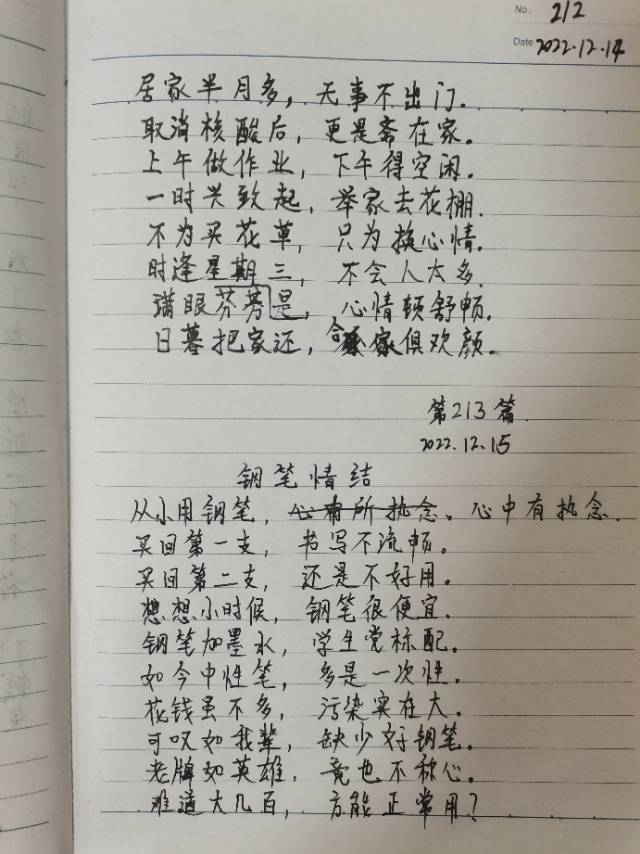 No. 212
Date 2022.12.14
居家半月多，无事不出门。
取消核酸后，更是斋在家。
上午做作业，下午得空闲。
一时兴致起，举家去花棚。
不为买花草，只为换心情。
时逢星期三，不会人太多。
满眼芬芳是，心情顿舒畅。
日暮把家还，合家俱欢颜。
第213篇
2022.12.15
钢笔情结
从小用钢笔，心有所执念。心中有执念
买回第一支，书写不流畅。
买回第二支，还是不好用。
想想小时候，钢笔很便宜。
钢笔加墨水，学生党标配。
如今中性笔，多是一次性。
花钱虽不多，污染实在大。
可叹如我辈，缺少好钢笔。
老牌如英雄，竟也不称心。
难道大几百，方能正常用？